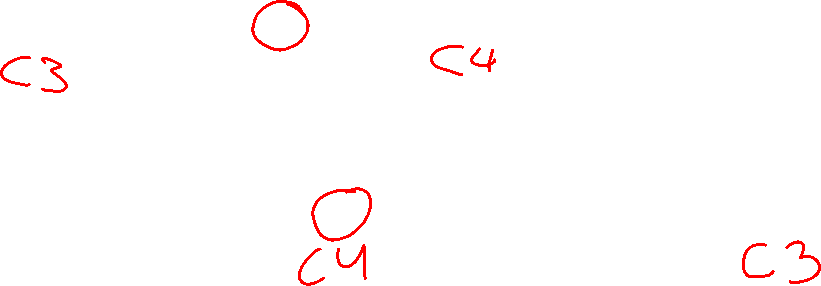 C3 C4
C4 C3